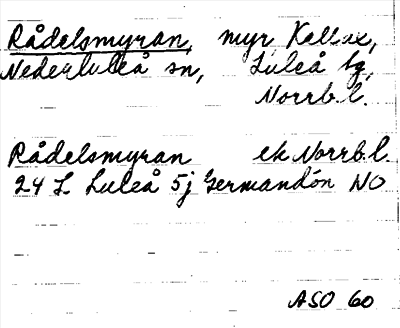 Rådelsmyran, myr Kallax,
Nederluleå sn, Luleå tg,
Norrb. l.
Rådelsmyran ek Norrb. l.
24 L Luleå 5j Germandön NO
ASO 60